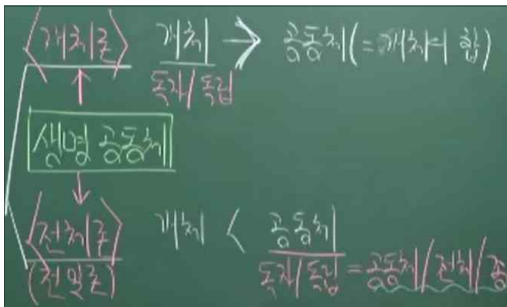 <개체론> 개체 → 공동체(=개체의 합)
독자/독립
생명 공동체
<전체론> 개체 < 공동체
(전일론) 독자/독립=공동체/전체/종